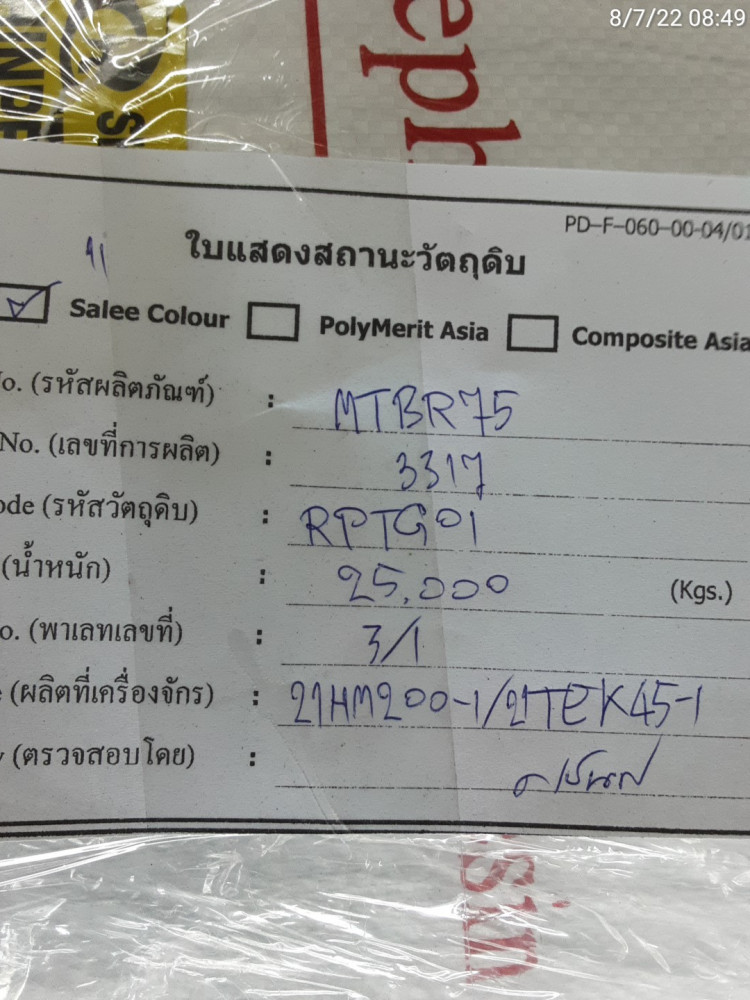 8/7/22 08:49
eph
PD-F-060-00-04/01
ใบแสดงสถานะวัตถุดิบ
Salee Colour PolyMerit Asia Composite Asia
o. (รหัสผลิตภัณฑ์) : MTBR75
No. (เลขที่การผลิต) : 3317
ode (รหัสวัตถุดิบ) : RPTG01
(น้ำหนัก) : 25.000 (Kgs.)
o. (พาเลทเลขที่) : 3/1
(ผลิตที่เครื่องจักร) : 21HM200-1/21TEK45-1
(ตรวจสอบโดย) :
sin